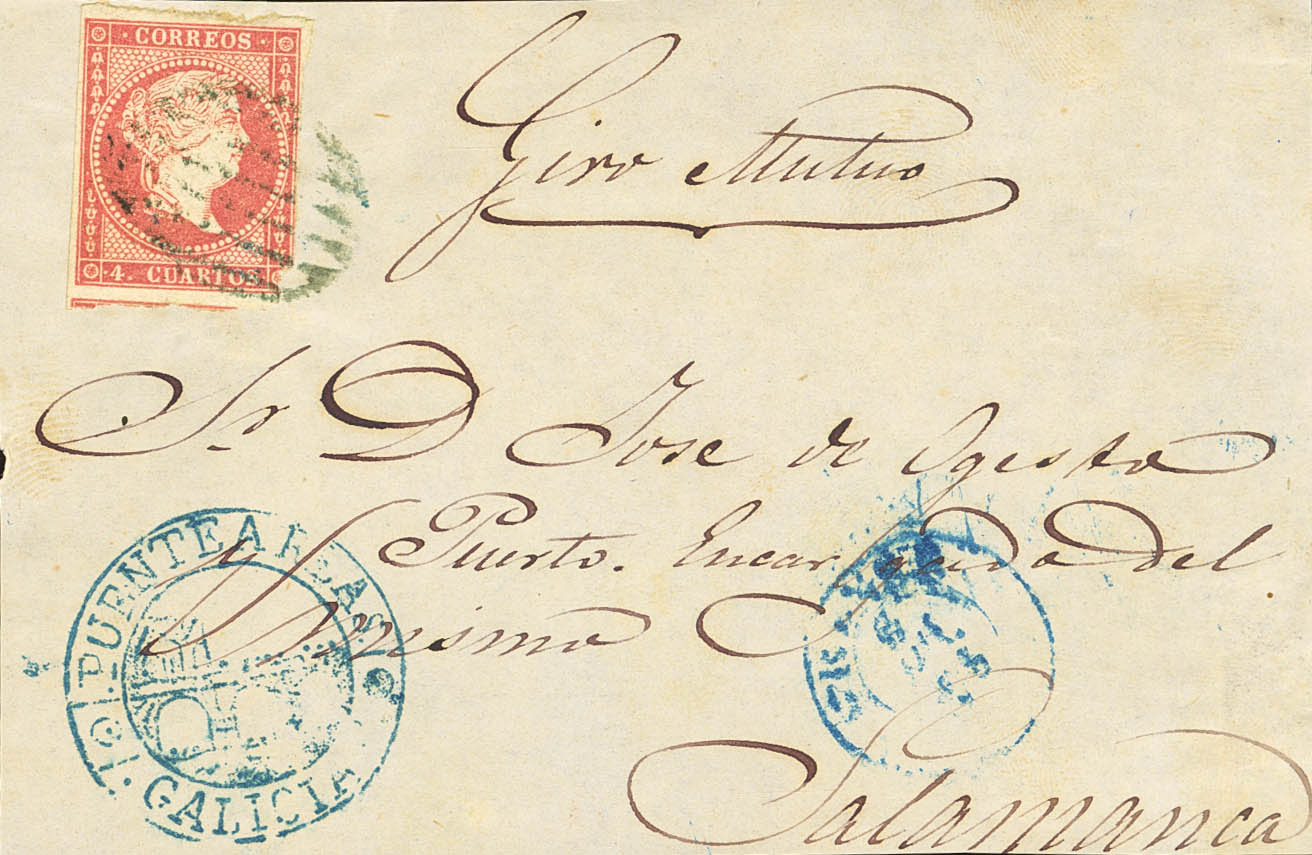 CORREOS
4. CUARTOS
Giro Mutuo
Sr D Jose de Ygesta
y Puerto. Encargado del
mismo
Salamanca
PUENTEAREAS
GALICIA